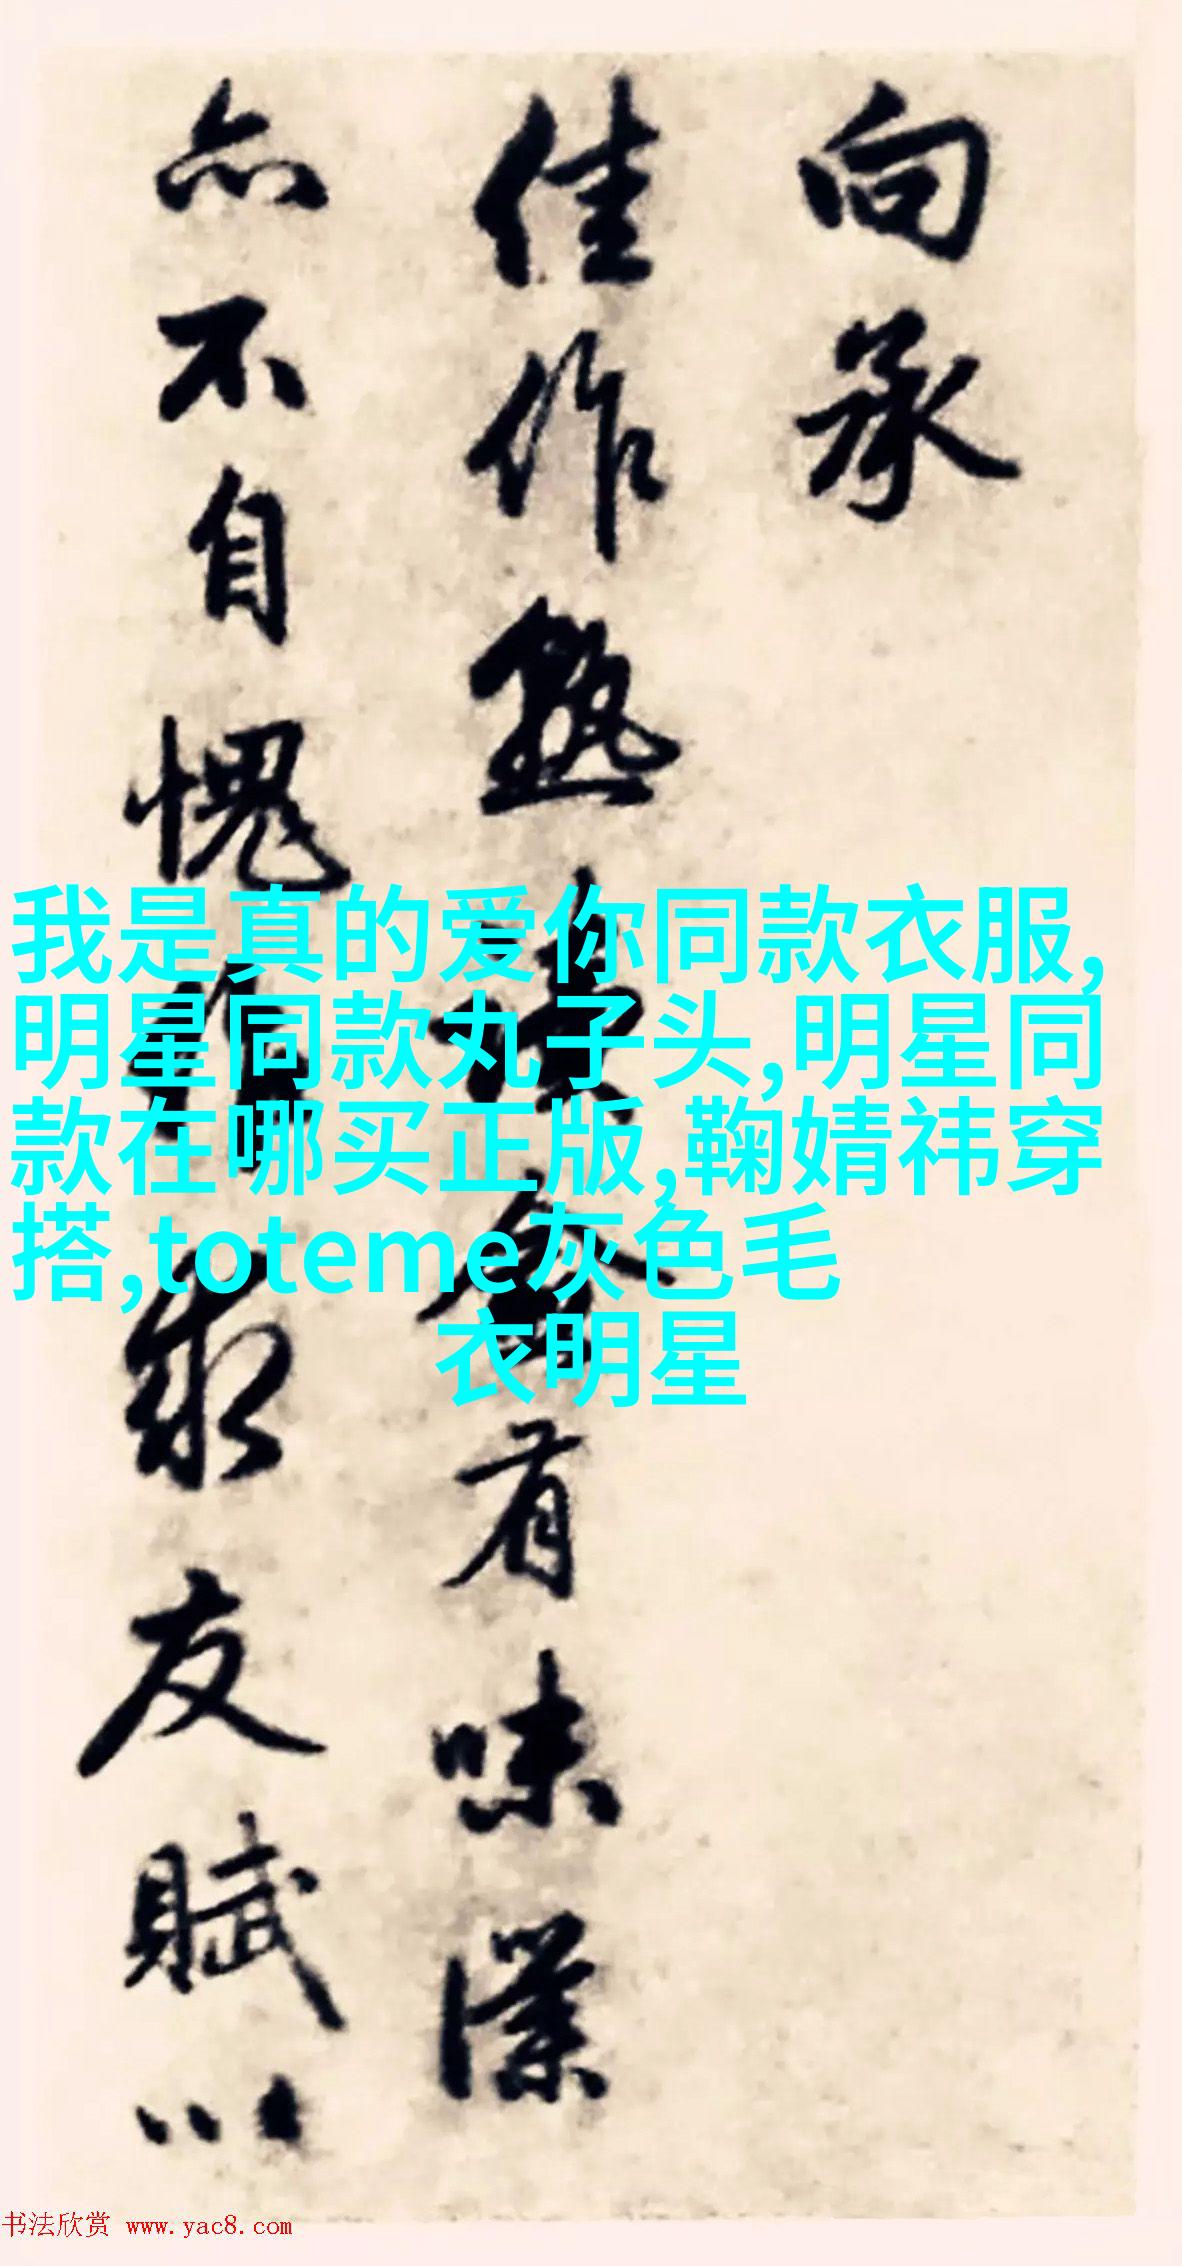 向承
佳作熟读余有味深
亦不自愧作求友赋以
我是真的爱你同款衣服,
明星同款丸子头,明星同
款在哪买正版,鞠婧祎穿
搭,toteme灰色毛
衣明星
书法欣赏 www.yac8.com